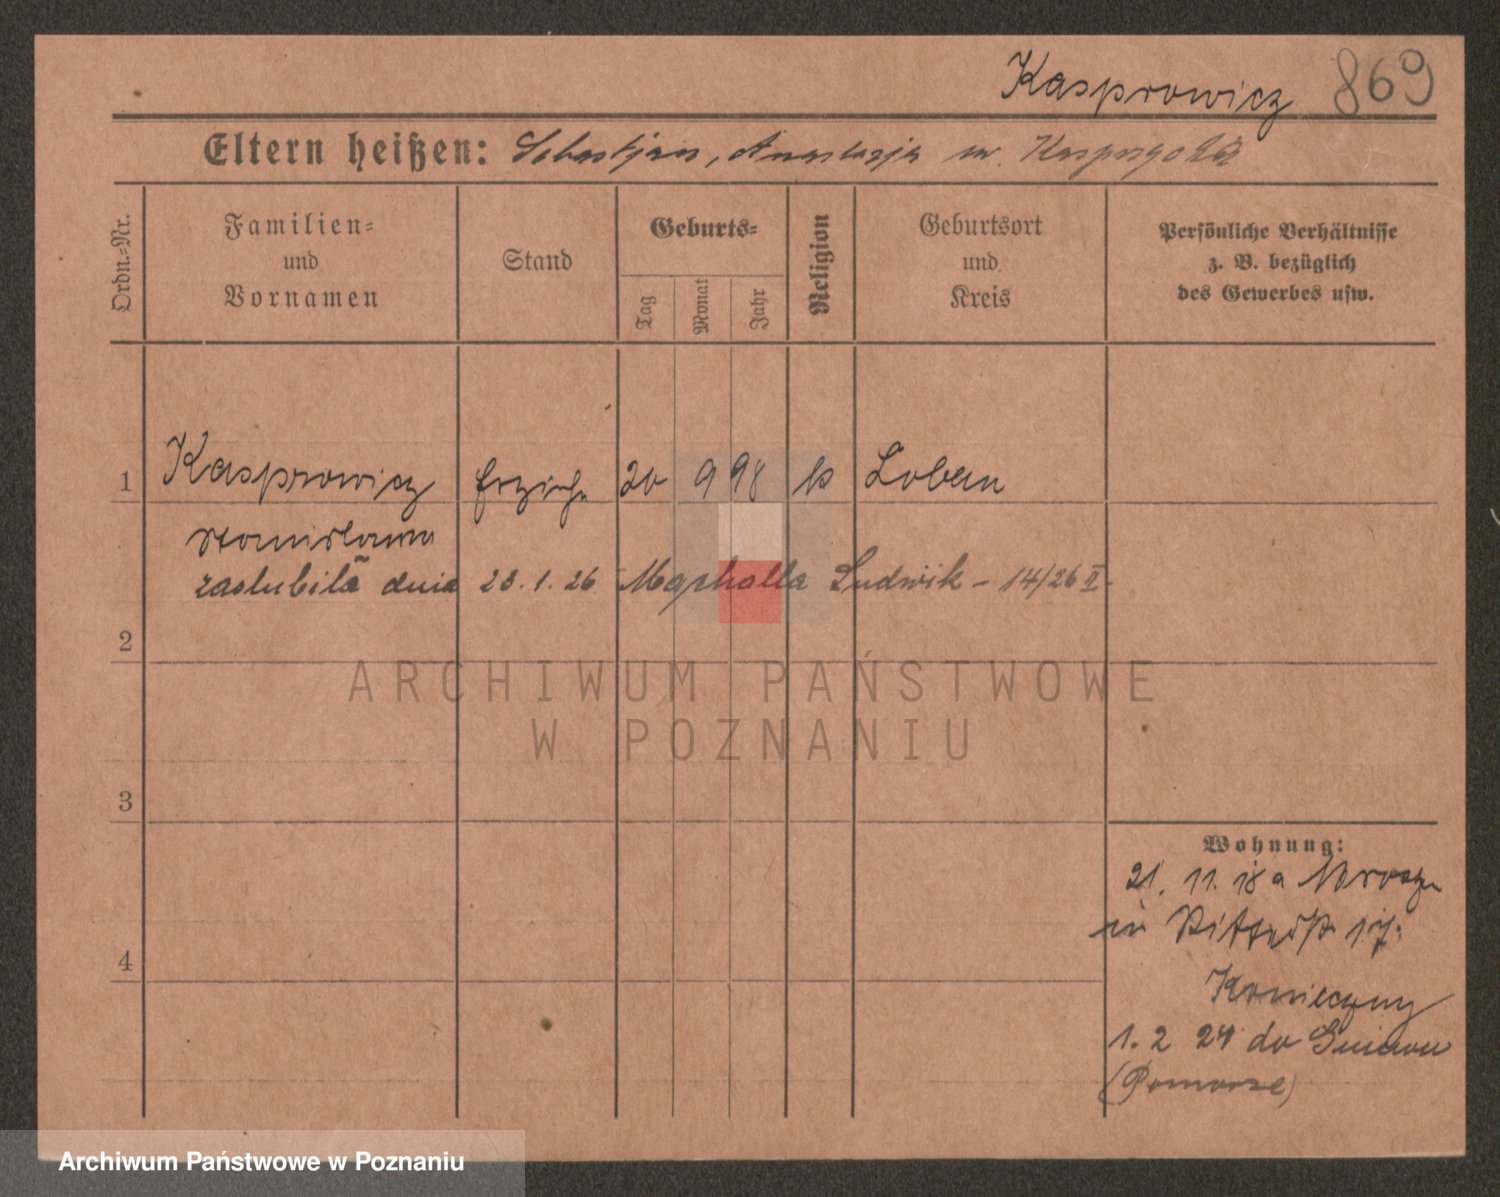 Kasprowicz 869
Eltern heißen: Sebastjan, Anastazja
Ordn.-Nr.
Familien-
und
Vornamen
Stand
Geburts-
Tag
Monat
Jahr
Religion
Geburtsort
und
Kreis
Persönliche Verhältnisse
z. B. bezüglich
des Gewerbes usw.
1 Kasprowicz 20 9 98 k
zaslubiła dnia 23. 1. 26 Ludwik - 14/26 II
2
ARCHIWUM PAŃSTWOWE
W POZNANIU
3
Wohnung:
21. 11. 18 a
in
4
Konieczny
1. 2 24 do
(Pomorze)
Archiwum Państwowe w Poznaniu